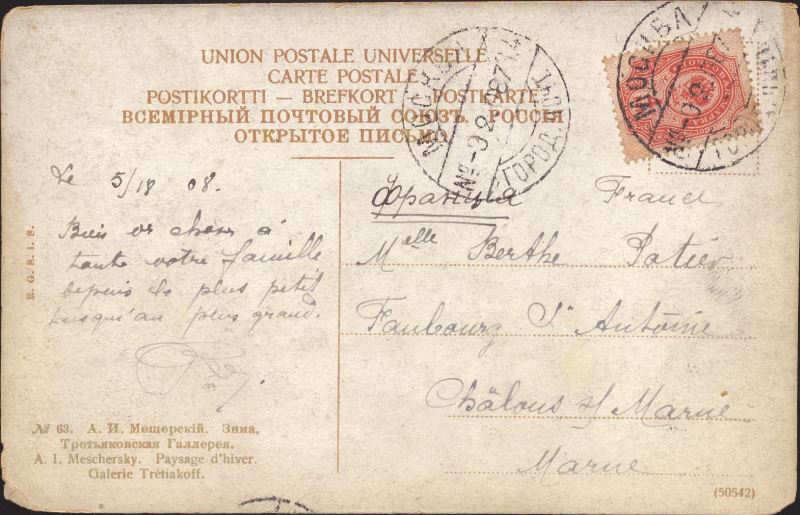 UNION POSTALE UNIVERSELLE
CARTE POSTALE
POSTIKORTTI — BREFKORT — POSTKARTE
ВСЕМІРНЫЙ ПОЧТОВЫЙ СОЮЗЪ. РОССІЯ
ОТКРЫТОЕ ПИСЬМО
МОСКВА
ГОРОД.
МОСКВА
Le 5/18 08.
à
toute votre famille
depuis le plus petit
jusqu'au plus grand.
Франція France
Melle Berthe Patier
Faubourg St Antoine
Châlons s/ Marne
Marne
E. G. S. I. S.
№ 63. А. И. Мещерскій. Зима.
Третьяковская Галлерея.
A. I. Meschersky. Paysage d'hiver.
Galerie Trétiakoff.
(50542)